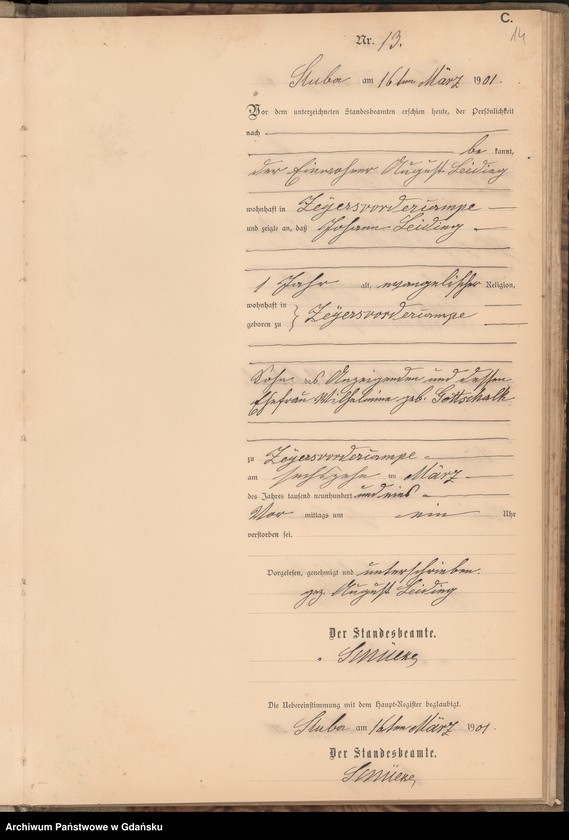 C.
14
Nr. 13.
Stuba am 16ten März 1901.
Vor dem unterzeichneten Standesbeamten erschien heute, der Persönlichkeit
nach
be kannt,
der Einwohner August Leiding
wohnhaft in Zeyersvorderkampe
und zeigte an, daß Johann Leiding
1 Jahr alt, evangelischer Religion,
wohnhaft in
geboren zu } Zeyersvorderkampe
Sohn des Anzeigenden und dessen
Ehefrau Wilhelmine geb. Gottschalk
zu Zeyersvorderkampe
am sechszehn ten März
des Jahres tausend neunhundert und eins
Vor mittags um ein Uhr
verstorben sei.
Vorgelesen, genehmigt und unterschrieben.
gez. August Leiding
Der Standesbeamte.
Die Uebereinstimmung mit dem Haupt-Register beglaubigt.
Stuba am 16ten März 1901.
Der Standesbeamte.
Archiwum Państwowe w Gdańsku